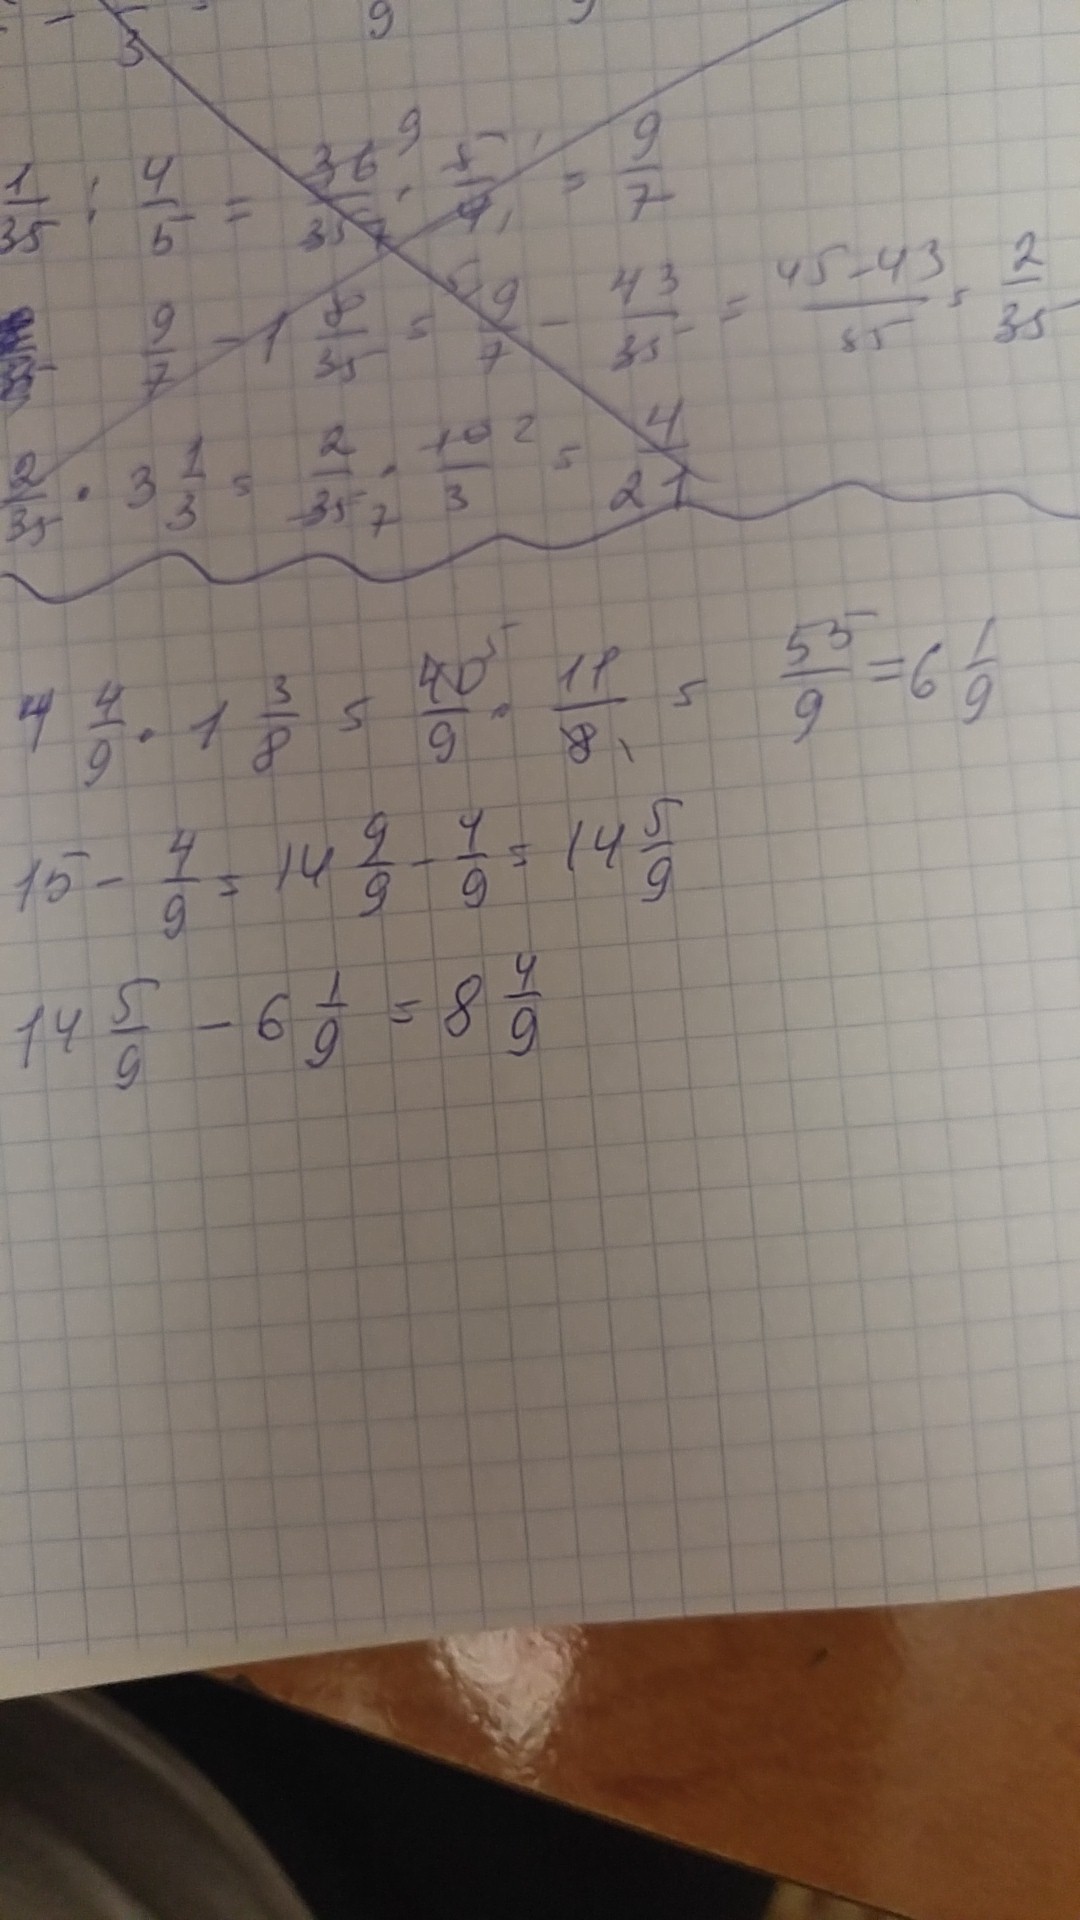 3 9 9
1/35 : 4/5 = 36 9/35 7 · 5 1/4 1 = 9/7
9/7 - 1 8/35 = 5 9/7 - 43/35 = 45-43/35 = 2/35
2/35 · 3 1/3 = 2/35 7 · 10 2/3 = 4/21
4 4/9 · 1 3/8 = 40 5/9 · 11/8 1 = 55/9 = 6 1/9
15 - 4/9 = 14 9/9 - 4/9 = 14 5/9
14 5/9 - 6 1/9 = 8 4/9